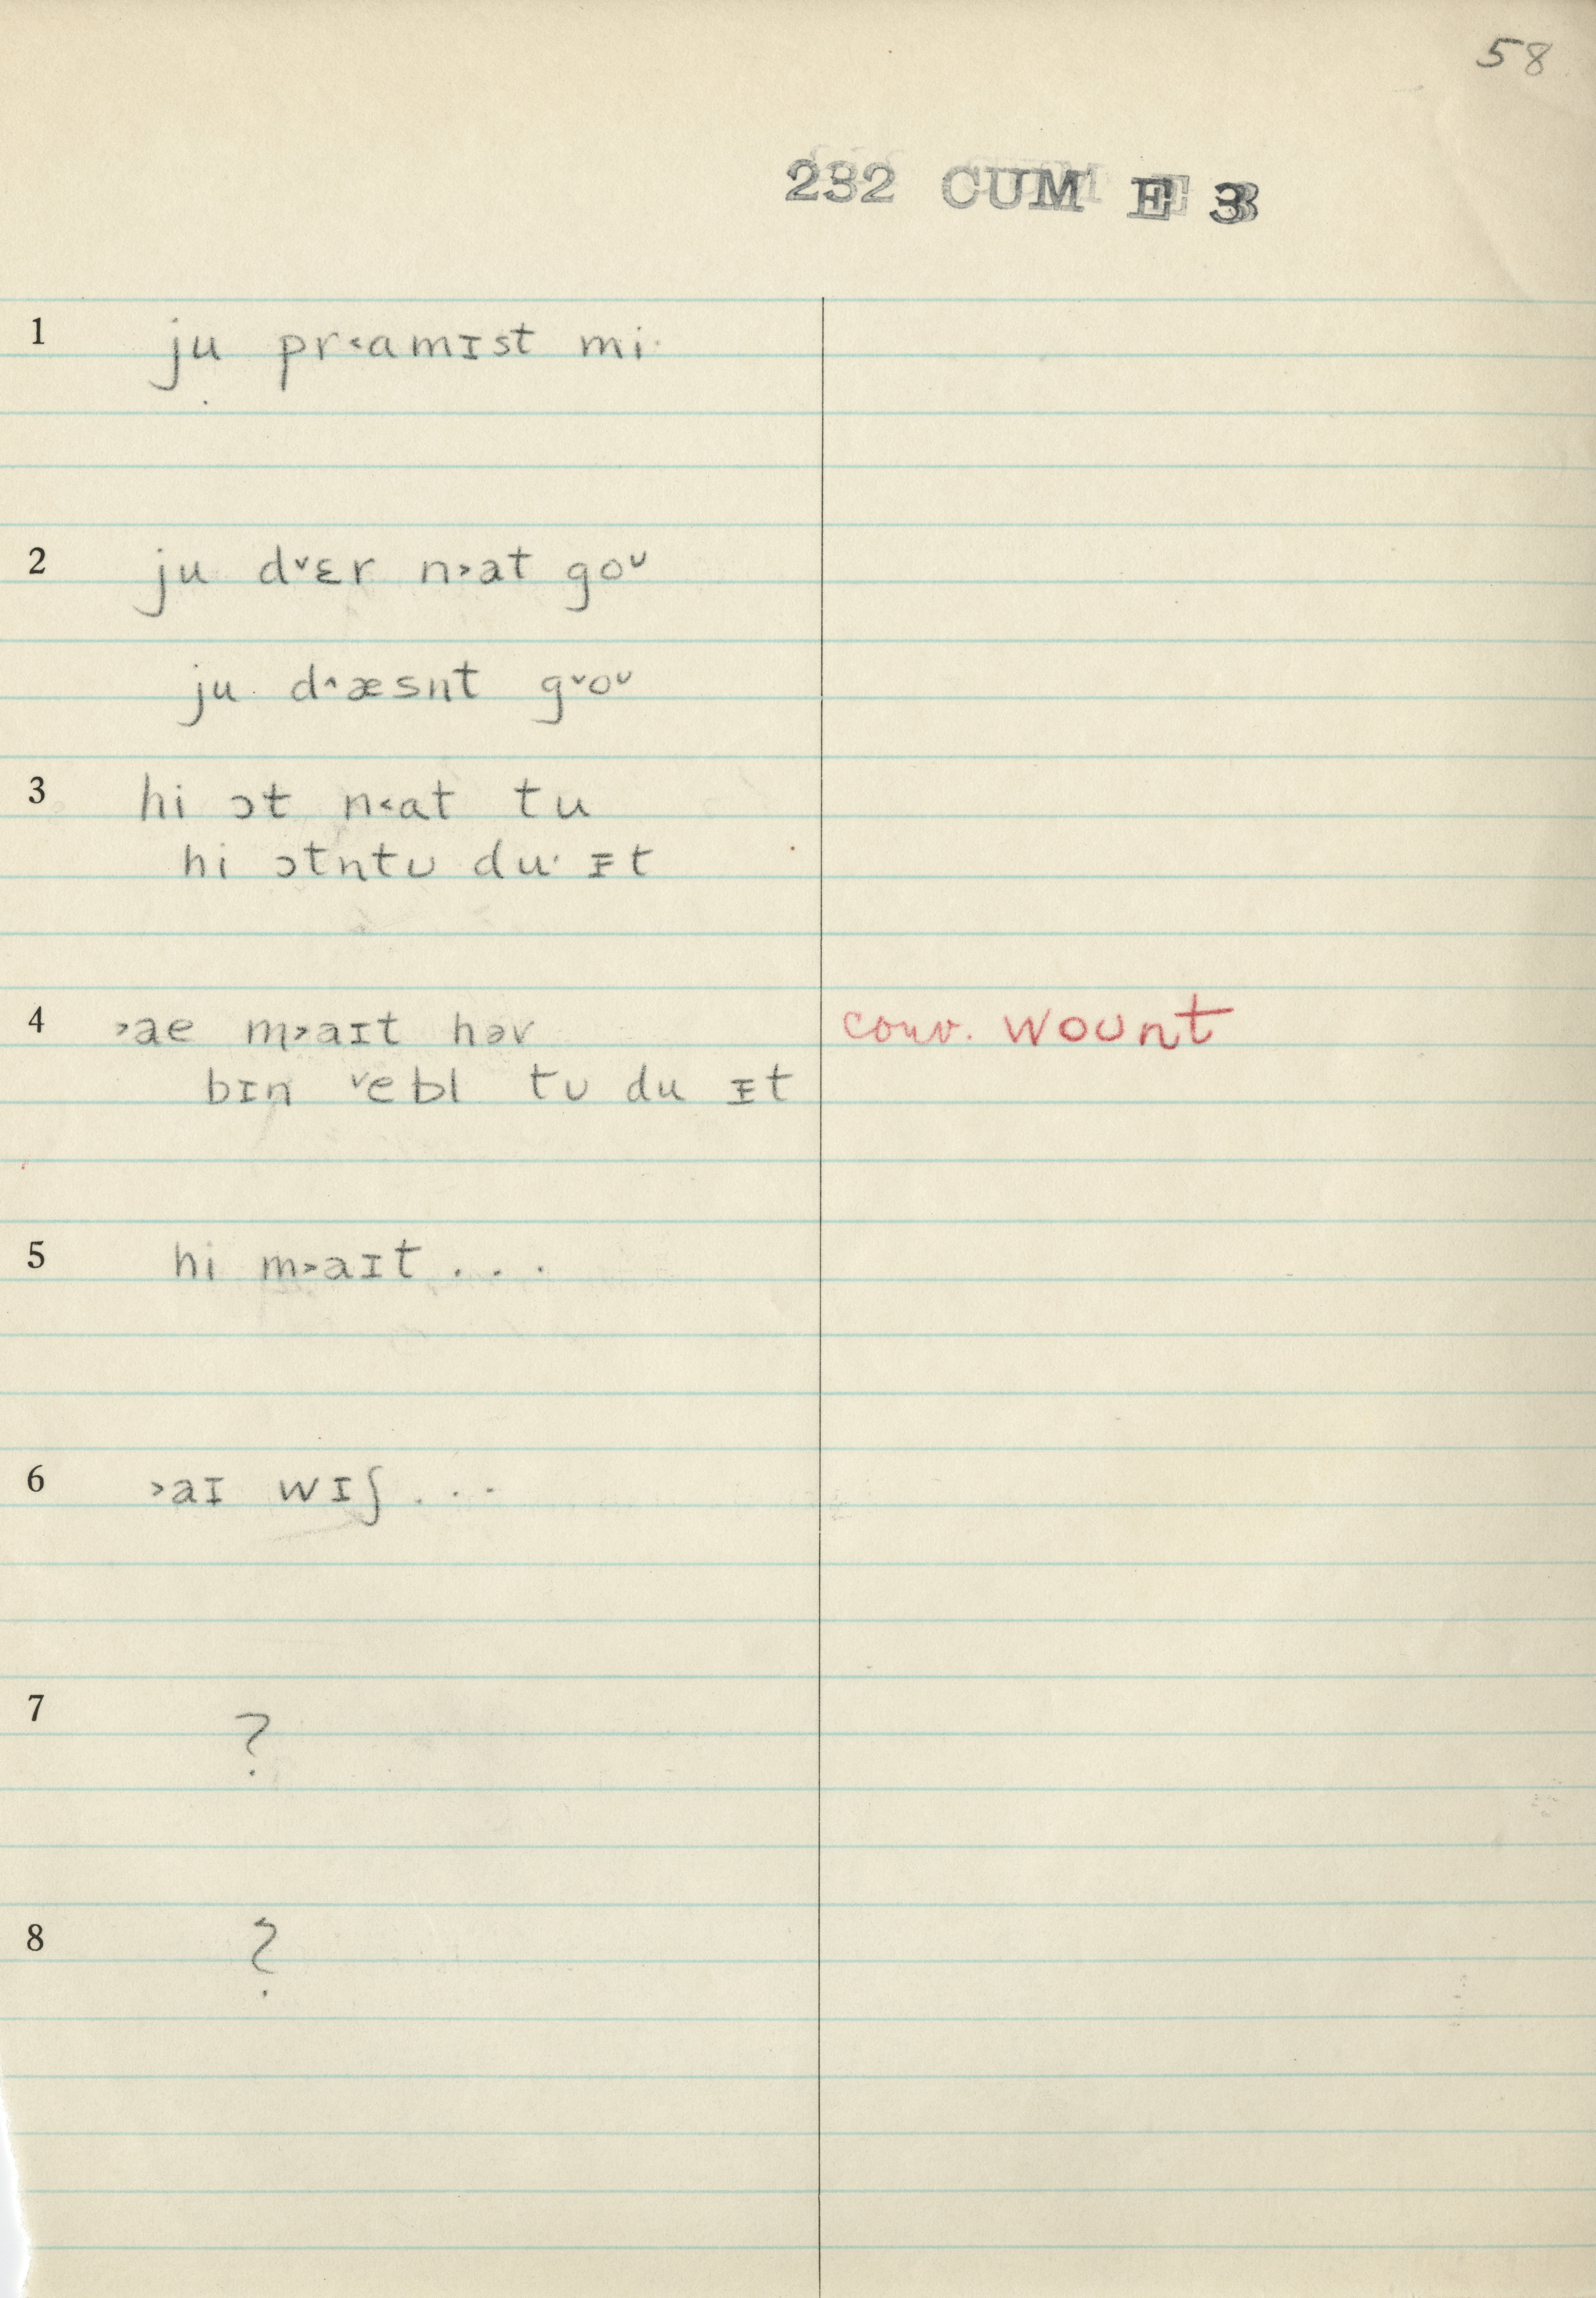 58
232 CUM E 3
1 ju pr˂amɪst mi·
2 ju d˅ɛr n˃at goᴜ
ju d˄æsnt g˅oᴜ
3 hi ɔt n˂at tu
hi ɔtntᴜ du· ᵻt
4 ˃ae m˃aɪt həv conv. woᴜnt
bɪn ˅ebl tᴜ du ᵻt
5 hi m˃aɪt . . .
6 ˃aɪ wɪʃ . . .
7 ?
8 ?